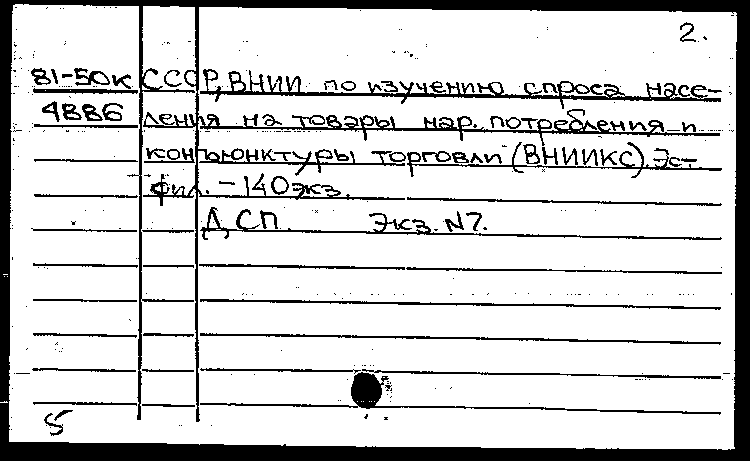 2.
81-50К СССР, ВНИИ по изучению спроса насе-
4886 ления на товары нар. потребления и
конъюнктуры торговли (ВНИИКС). Эст.
фил. - 140 экз.
ДСП. Экз. N7.
5